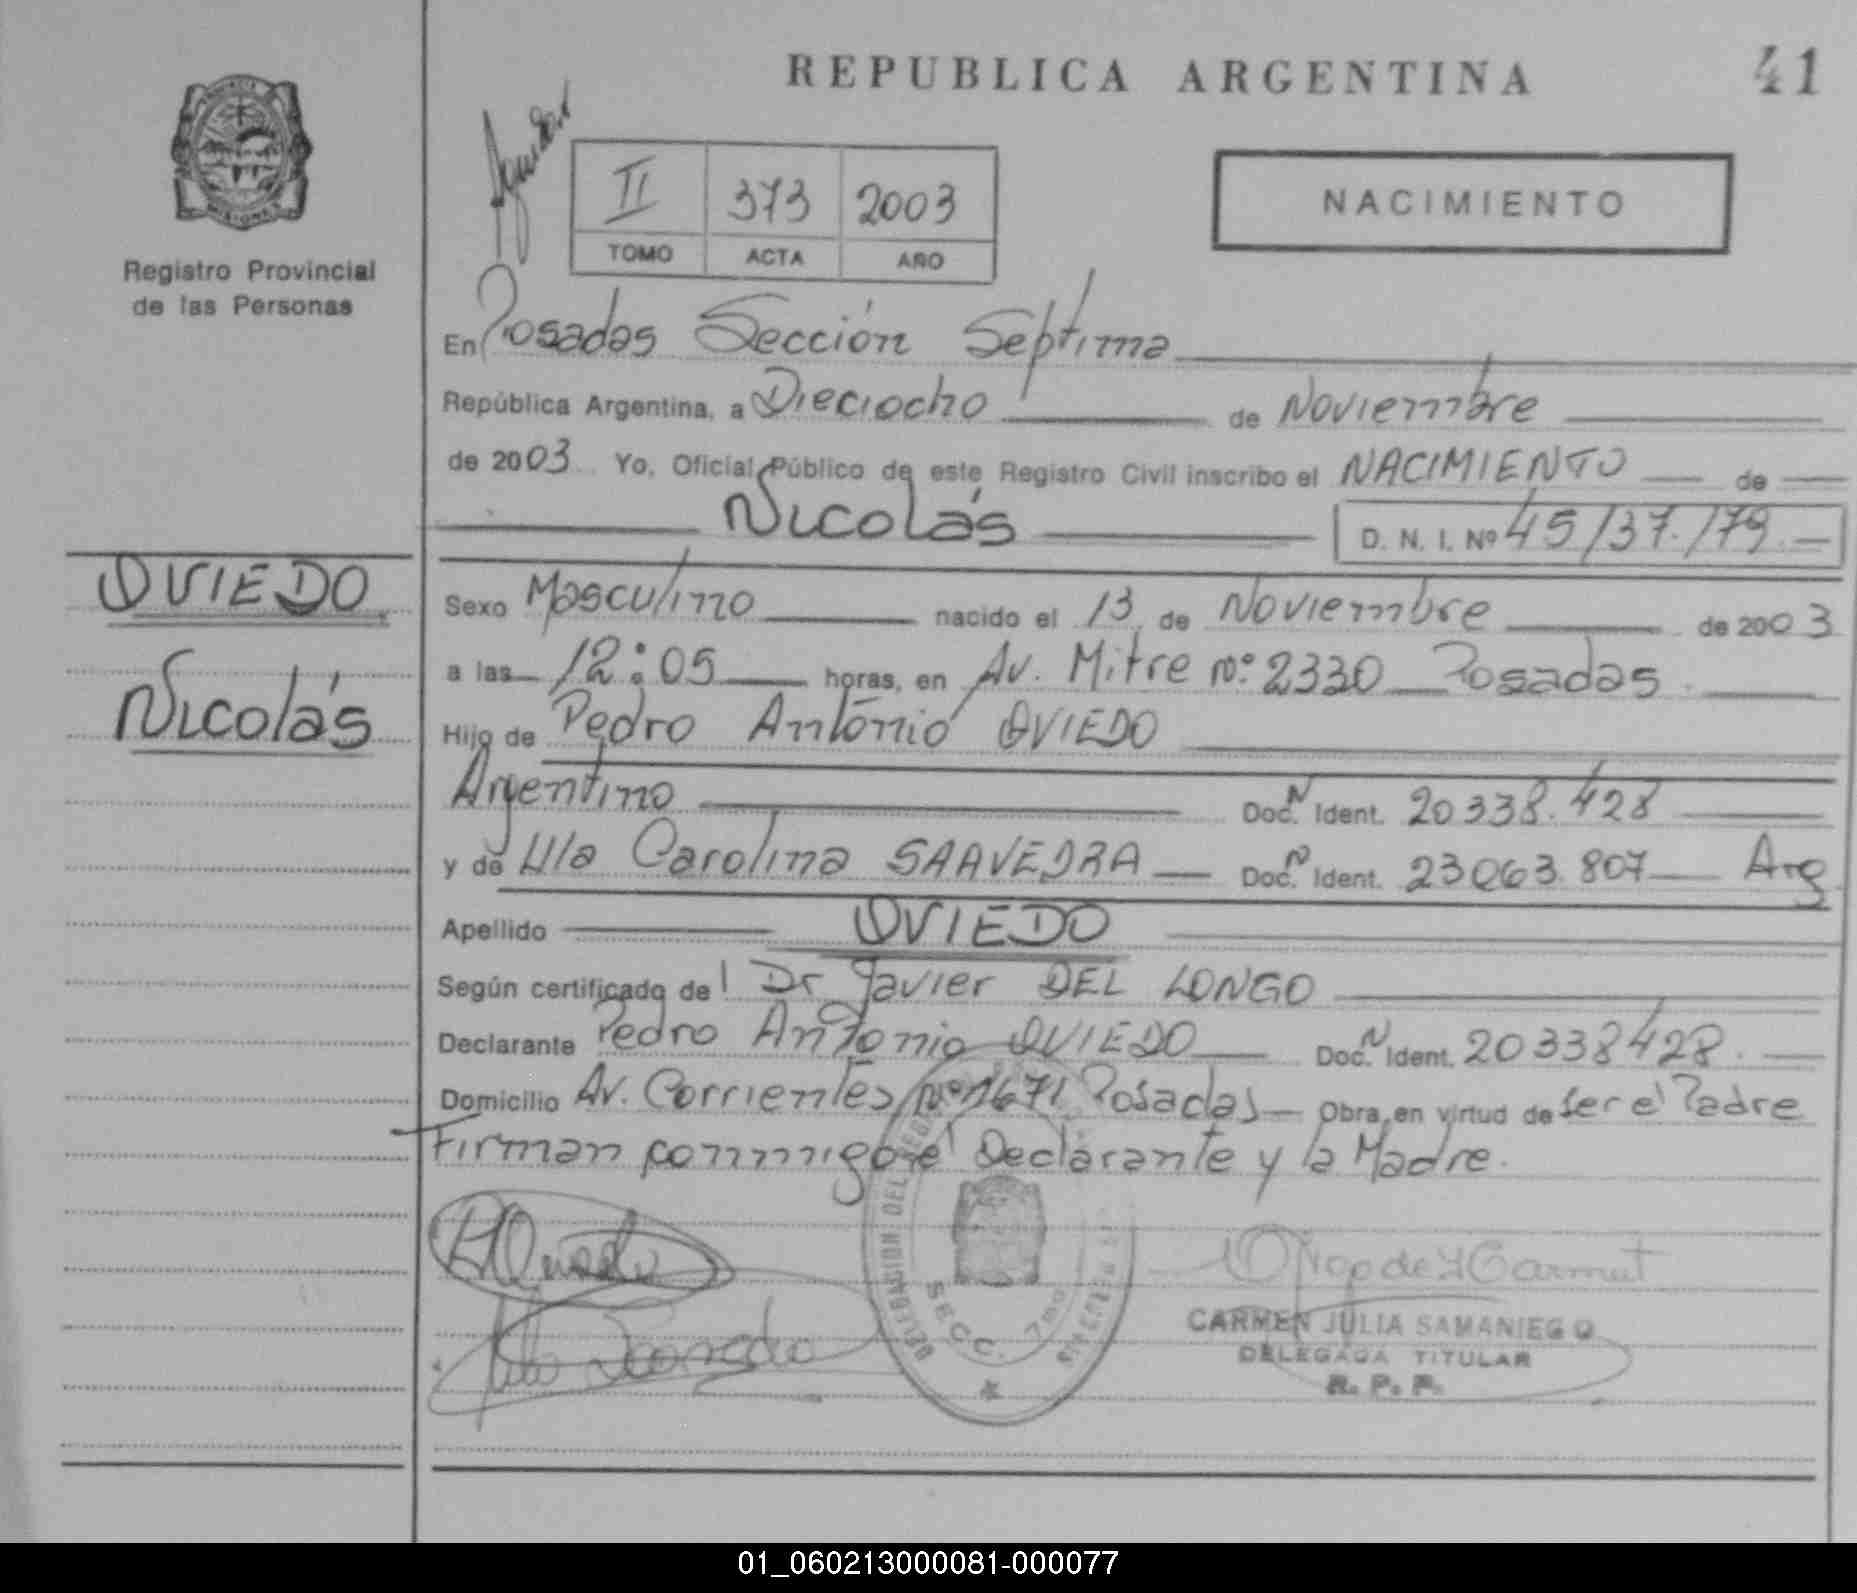 REPUBLICA ARGENTINA
41
II 373 2003
TOMO ACTA AÑO
NACIMIENTO
MISIONES
Registro Provincial
de las Personas
En Posadas Sección Septima
República Argentina, a Dieciocho de Noviembre
de 2003 Yo, Oficial Público de este Registro Civil inscribo el NACIMIENTO de
Nicolás D. N. I. Nº 45/37./79.
OVIEDO
Nicolás
Sexo Masculino nacido el 13 de Noviembre de 2003
a las 12:05 horas, en Av. Mitre Nº 2330 Posadas
Hijo de Pedro Antonio OVIEDO
Argentino Doc. N Ident. 20338.428
y de Carolina SAAVEDRA Doc. N Ident. 23063.807 Arg
Apellido OVIEDO
Según certificado del Dr Javier DEL LONGO
Declarante Pedro Antonio OVIEDO Doc. N Ident. 20338428.
Domicilio Av. Corrientes Nº 1671 Posadas Obra en virtud de ser el Padre
Firman conmigo el Declarante y la Madre.
DELEGACION DEL
SECC. 7ma
CARMEN JULIA SAMANIEGO
DELEGADA TITULAR
R. P. P.
01_060213000081-000077